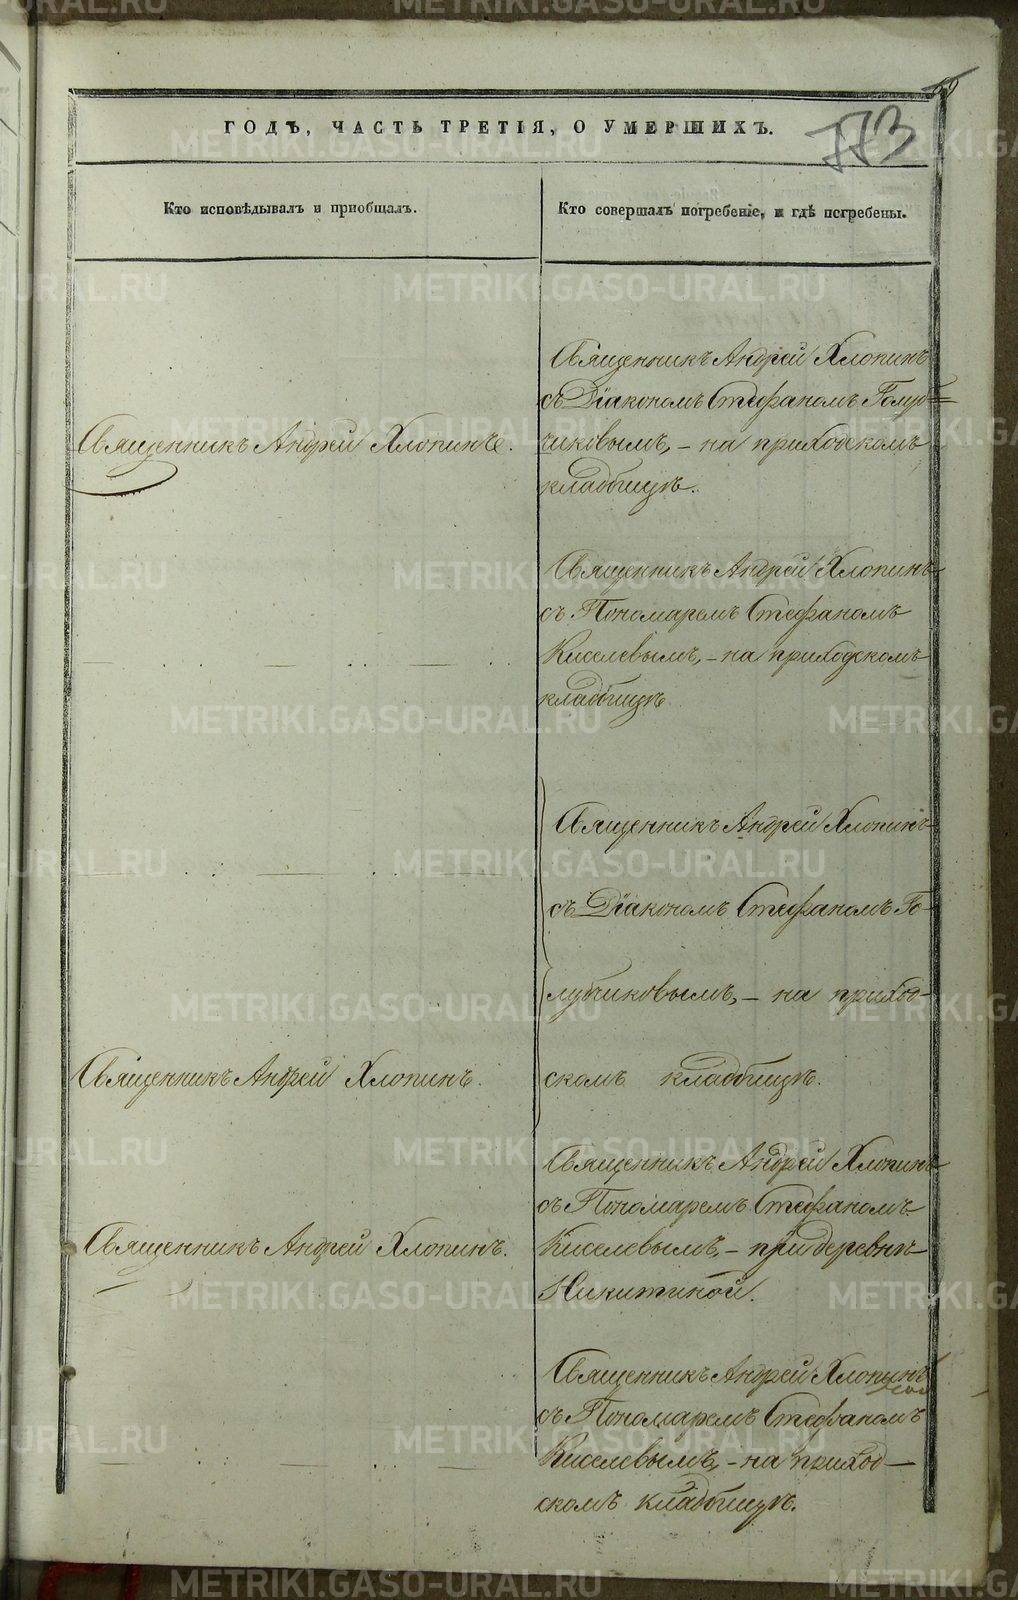 773
ГОДЪ, ЧАСТЬ ТРЕТІЯ, О УМЕРШИХЪ.
Кто исповѣдывалъ и пріобщалъ.
Кто совершалъ погребеніе, и гдѣ погребены.
Священникъ Андрей Хлопинъ
съ Діакономъ Стефаномъ Голуб=
чиковымъ, – на приходскомъ
кладбищѣ.
Священникъ Андрей Хлопинъ.
Священникъ Андрей Хлопинъ
съ Пономаремъ Стефаномъ
Киселевымъ, – на приходскомъ
кладбищѣ
Священникъ Андрей Хлопинъ
съ Діакономъ Стефаномъ Го-
лубчиковымъ, – на приход-
скомъ кладбищѣ.
Священникъ Андрей Хлопинъ.
Священникъ Андрей Хлопинъ
съ Пономаремъ Стефаномъ
Киселевымъ, – при деревнѣ
Никитиной.
Священникъ Андрей Хлопинъ.
Священникъ Андрей Хлопинъ
съ Пономаремъ Стефаномъ
Киселевымъ, – на приход-
скомъ кладбищѣ.
METRIKI.GASO-URAL.RU